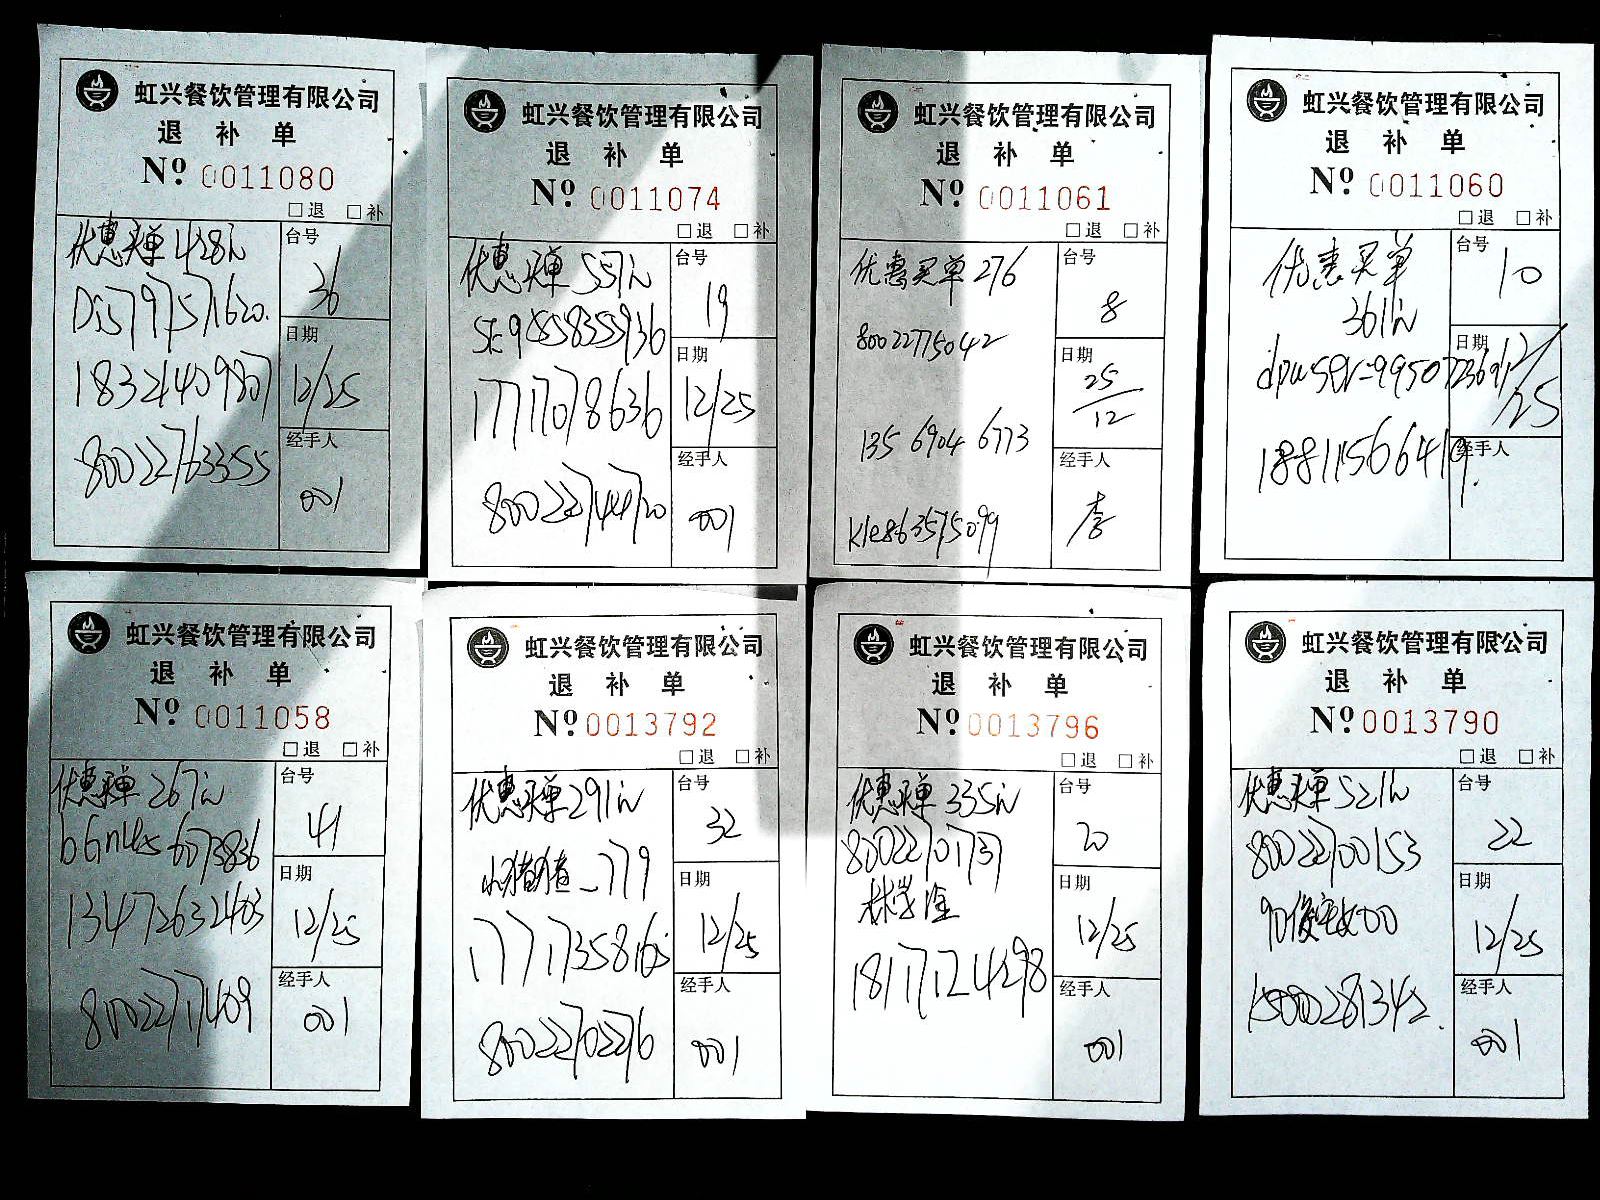 虹兴餐饮管理有限公司
退 补 单
Nº 0011080
□退 □补
优惠买单 428元
台号
36
日期
12/25
18321409807
800227633555
经手人
001
虹兴餐饮管理有限公司
退 补 单
Nº 0011074
□退 □补
优惠买单 557元
台号
19
日期
12/25
17717078636
经手人
001
虹兴餐饮管理有限公司
退 补 单
Nº 0011061
□退 □补
优惠买单 276
台号
8
80022775042
日期
25/12
135 6904 6773
经手人
李
虹兴餐饮管理有限公司
退 补 单
Nº 0011060
□退 □补
优惠买单
361元
台号
10
日期
12/25
经手人
虹兴餐饮管理有限公司
退 补 单
Nº 0011058
□退 □补
优惠买单 267元
台号
41
13472632403
日期
12/25
80022717409
经手人
001
虹兴餐饮管理有限公司
退 补 单
Nº 0013792
□退 □补
优惠买单 291元
台号
32
小猪猪_779
日期
12/25
17717358165
80022702276
经手人
001
虹兴餐饮管理有限公司
退 补 单
Nº 0013796
□退 □补
优惠买单 335元
台号
20
80022701737
日期
12/25
18171214298
经手人
001
虹兴餐饮管理有限公司
退 补 单
Nº 0013790
□退 □补
优惠买单 521元
台号
22
80022700153
日期
12/25
15000281342.
经手人
001